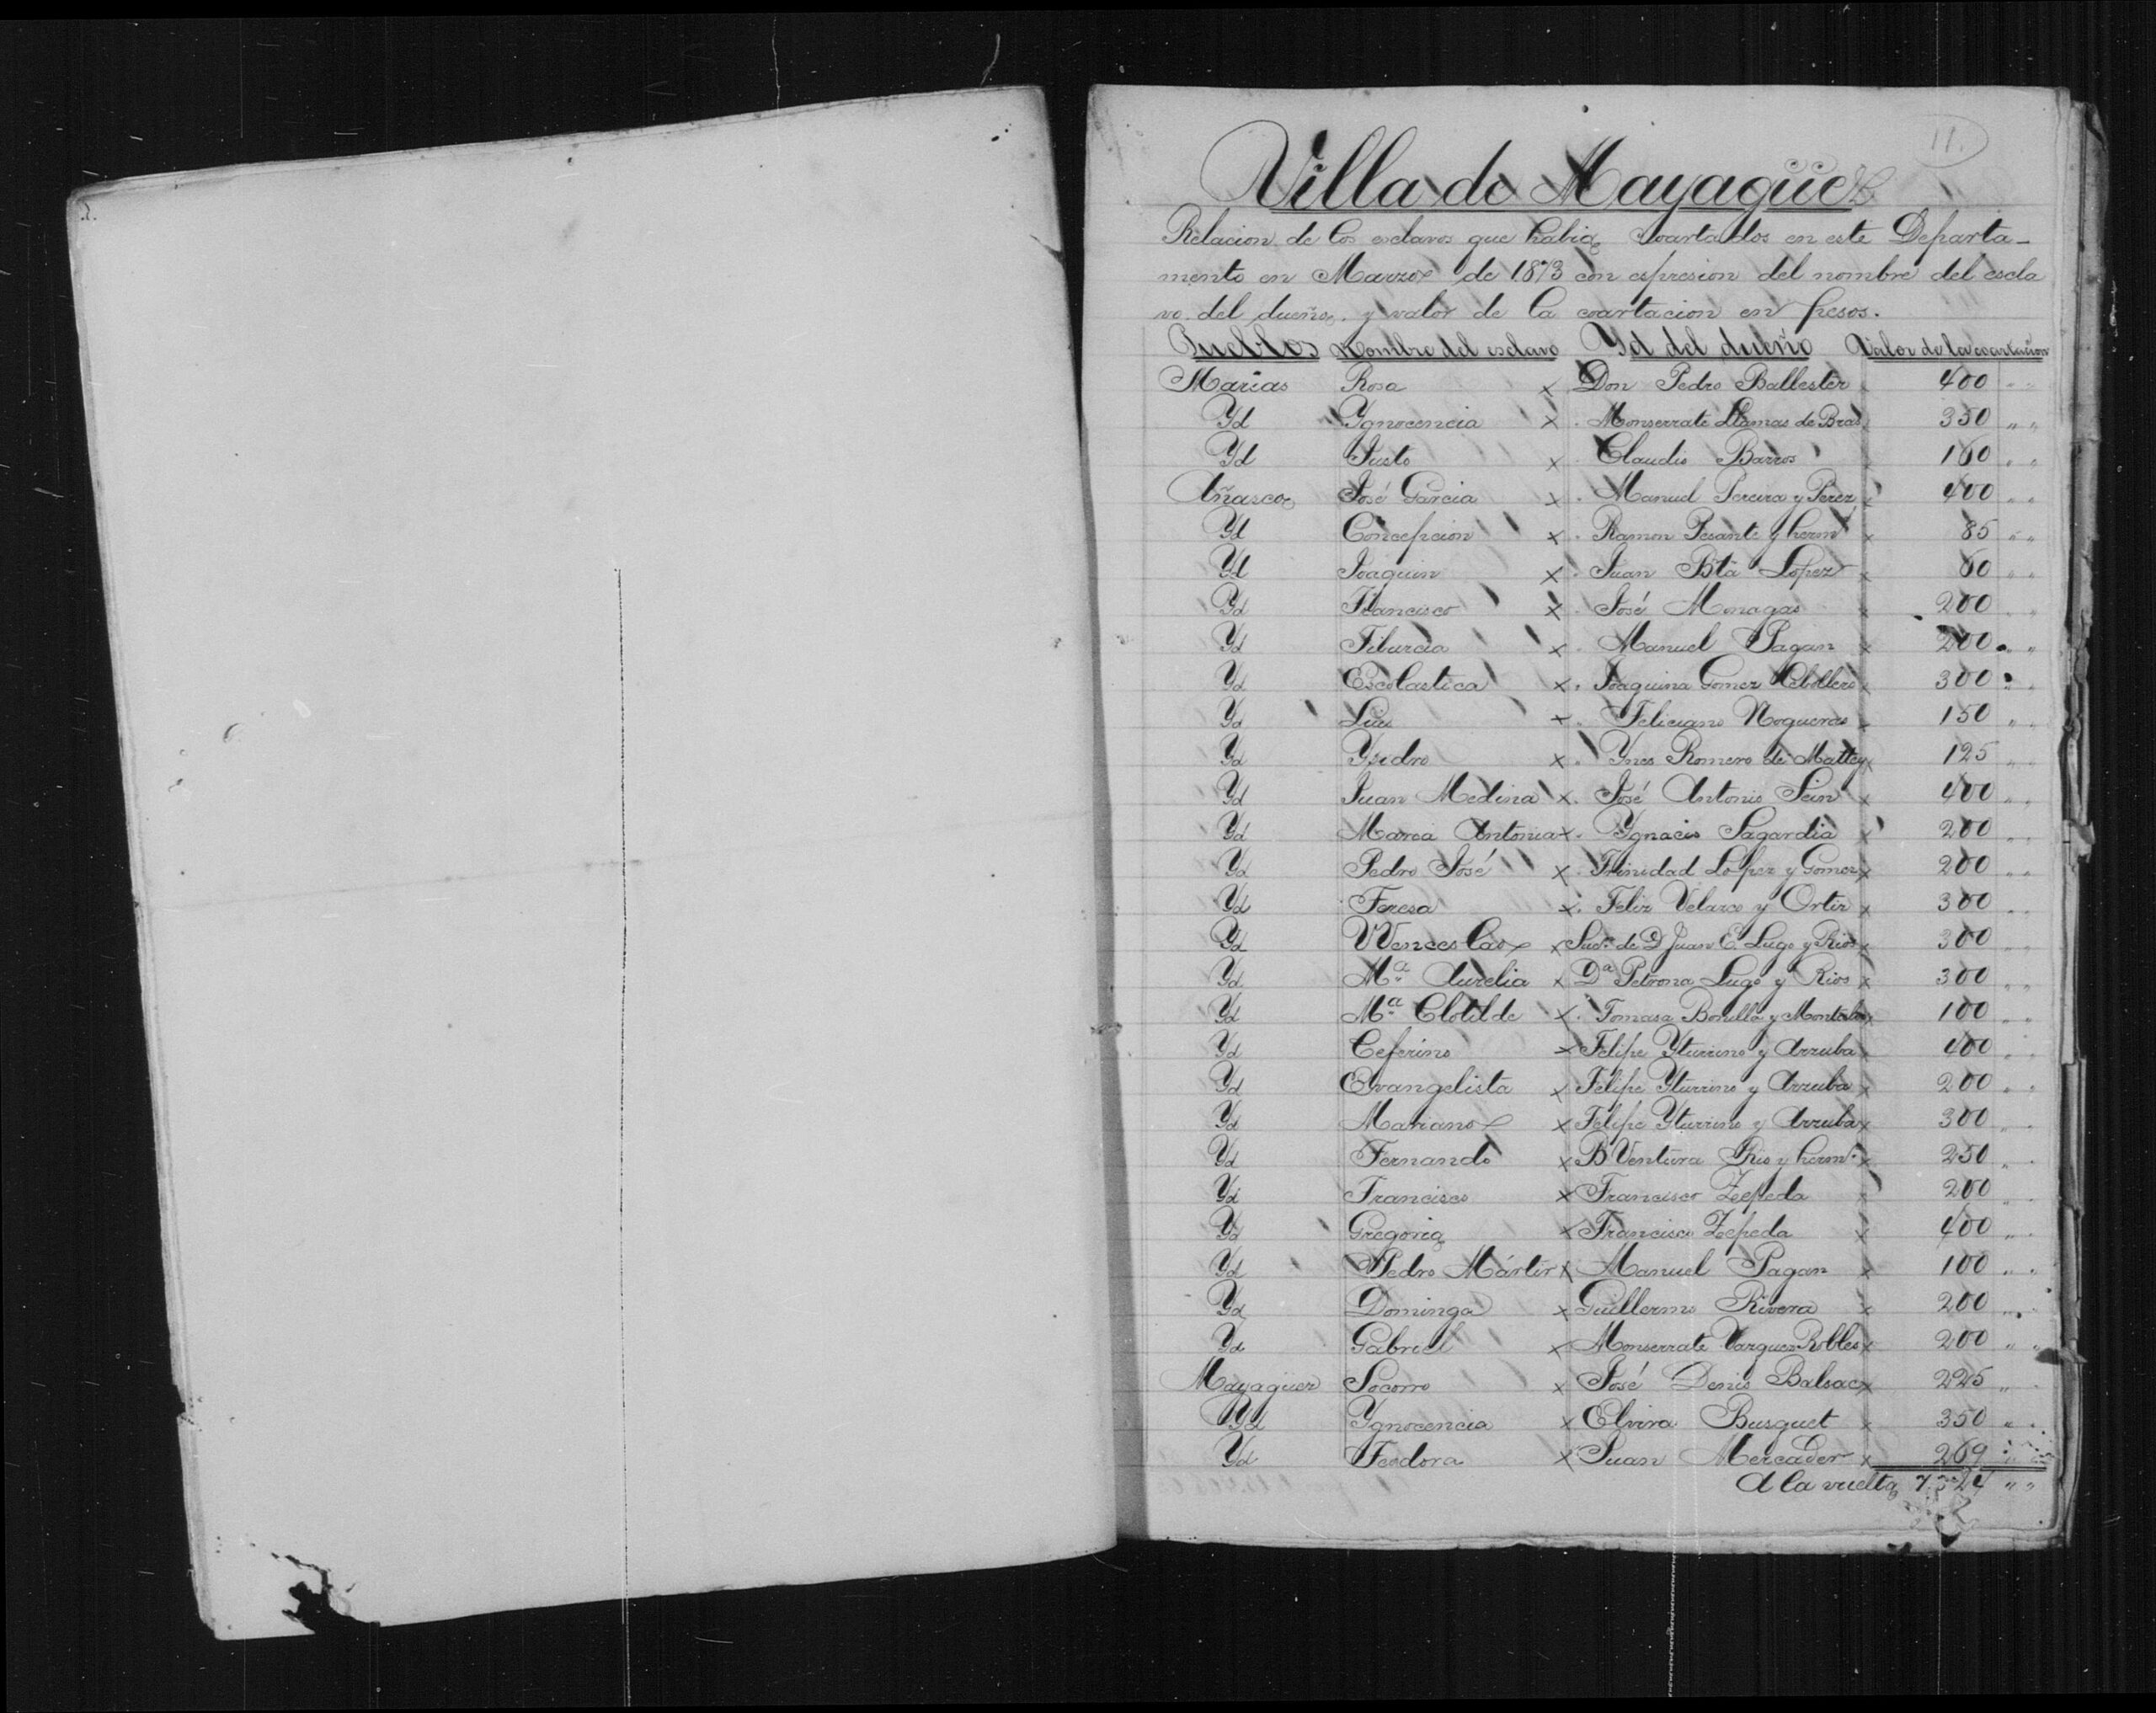 11.
Villa de Mayagüez
Relacion de los esclavos que habia coartados en este Departa-
mento en Marzo de 1873 con espresion del nombre del escla
vo. del dueño. y valor de la coartacion en pesos.
Pueblos Nombre del esclavo Yd del dueño Valor de la coartacion
Marias Rosa x Don Pedro Ballester 400 " "
Yd Ygnocencia x . Monserrate Llamas de Bras 350 " "
Yd Justo x . Claudio Barros 160 " "
Añasco José Garcia x . Manuel Pereira y Perez x 400 " "
Yd Concepcion x . Ramon Pesante y herm° x 85 " "
Yd Joaquin x . Juan Bta Lopez x 60 " "
Yd Francisco x . José Monagas x 200 " "
Yd Tiburcia x . Manuel Pagan x 200 " "
Yd Escolastica x . Joaquina Gomez Cebollero x 300 " "
Yd Luis x . Feliciano Nogueras x 150 " "
Yd Ysidro x . Ynes Romero de Mattey x 125 " "
Yd Juan Medina x . José Antonio Sein x 400 " "
Yd Maria Antonia x . Ygnacio Sagardia x 200 " "
Yd Pedro José x . Trinidad Lopez y Gomez x 200 " "
Yd Teresa x . Felix Velazco y Ortiz x 300 " "
Yd Wenceslao x Suc.n de D Juan E. Lugo y Rios x 300 " "
Yd Ma. Aurelia x Da Petrona Lugo y Rios x 300 " "
Yd Ma. Clotilde x . Tomasa Bonilla y x 100 " "
Yd Ceferino x Felipe Yturrino y Arzuba x 400 " "
Yd Evangelista x Felipe Yturrino y Arzuba x 200 " "
Yd Mariano x Felipe Yturrino y Arzuba x 300 " "
Yd Fernando x B Ventura Rio y herm.° x 250 " "
Yd Francisco x Francisco Zepeda x 200 " "
Yd Gregoria x Francisco Zepeda x 400 " "
Yd Pedro Mártir x Manuel Pagan x 100 " "
Yd Dominga x Guillermo Rivera x 200 " "
Yd Gabriel x Monserrate Vargues Robles x 200 " "
Mayagüez Socorro x José Denis Balsac x 225 " "
Yd Ygnocencia x Elvira Busquet x 350 " "
Yd Teodora x Juan Mercader x 269 " "
A la vuelta 7.324 " "